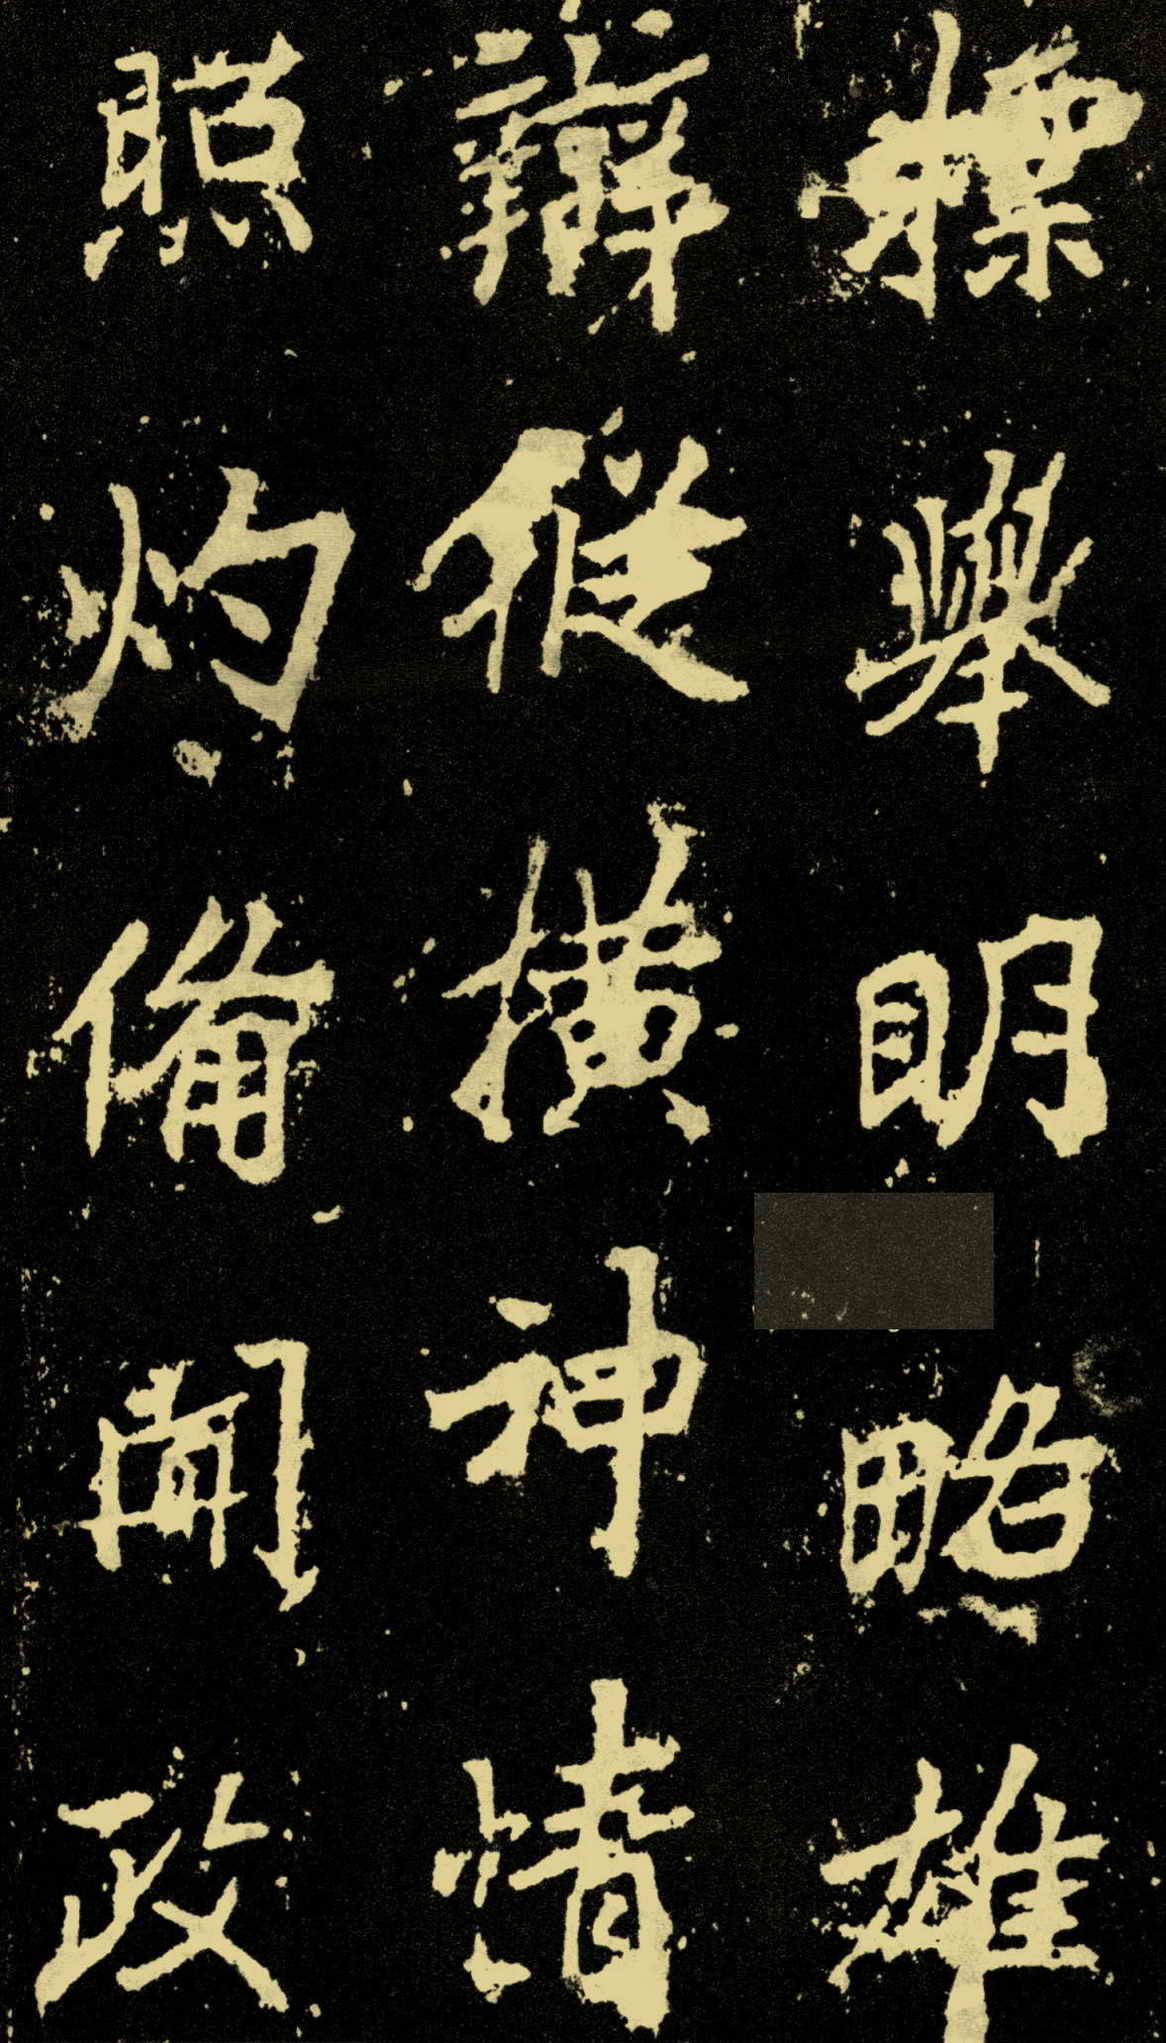 標舉明略雄
辯縱橫神情
照灼備聞政